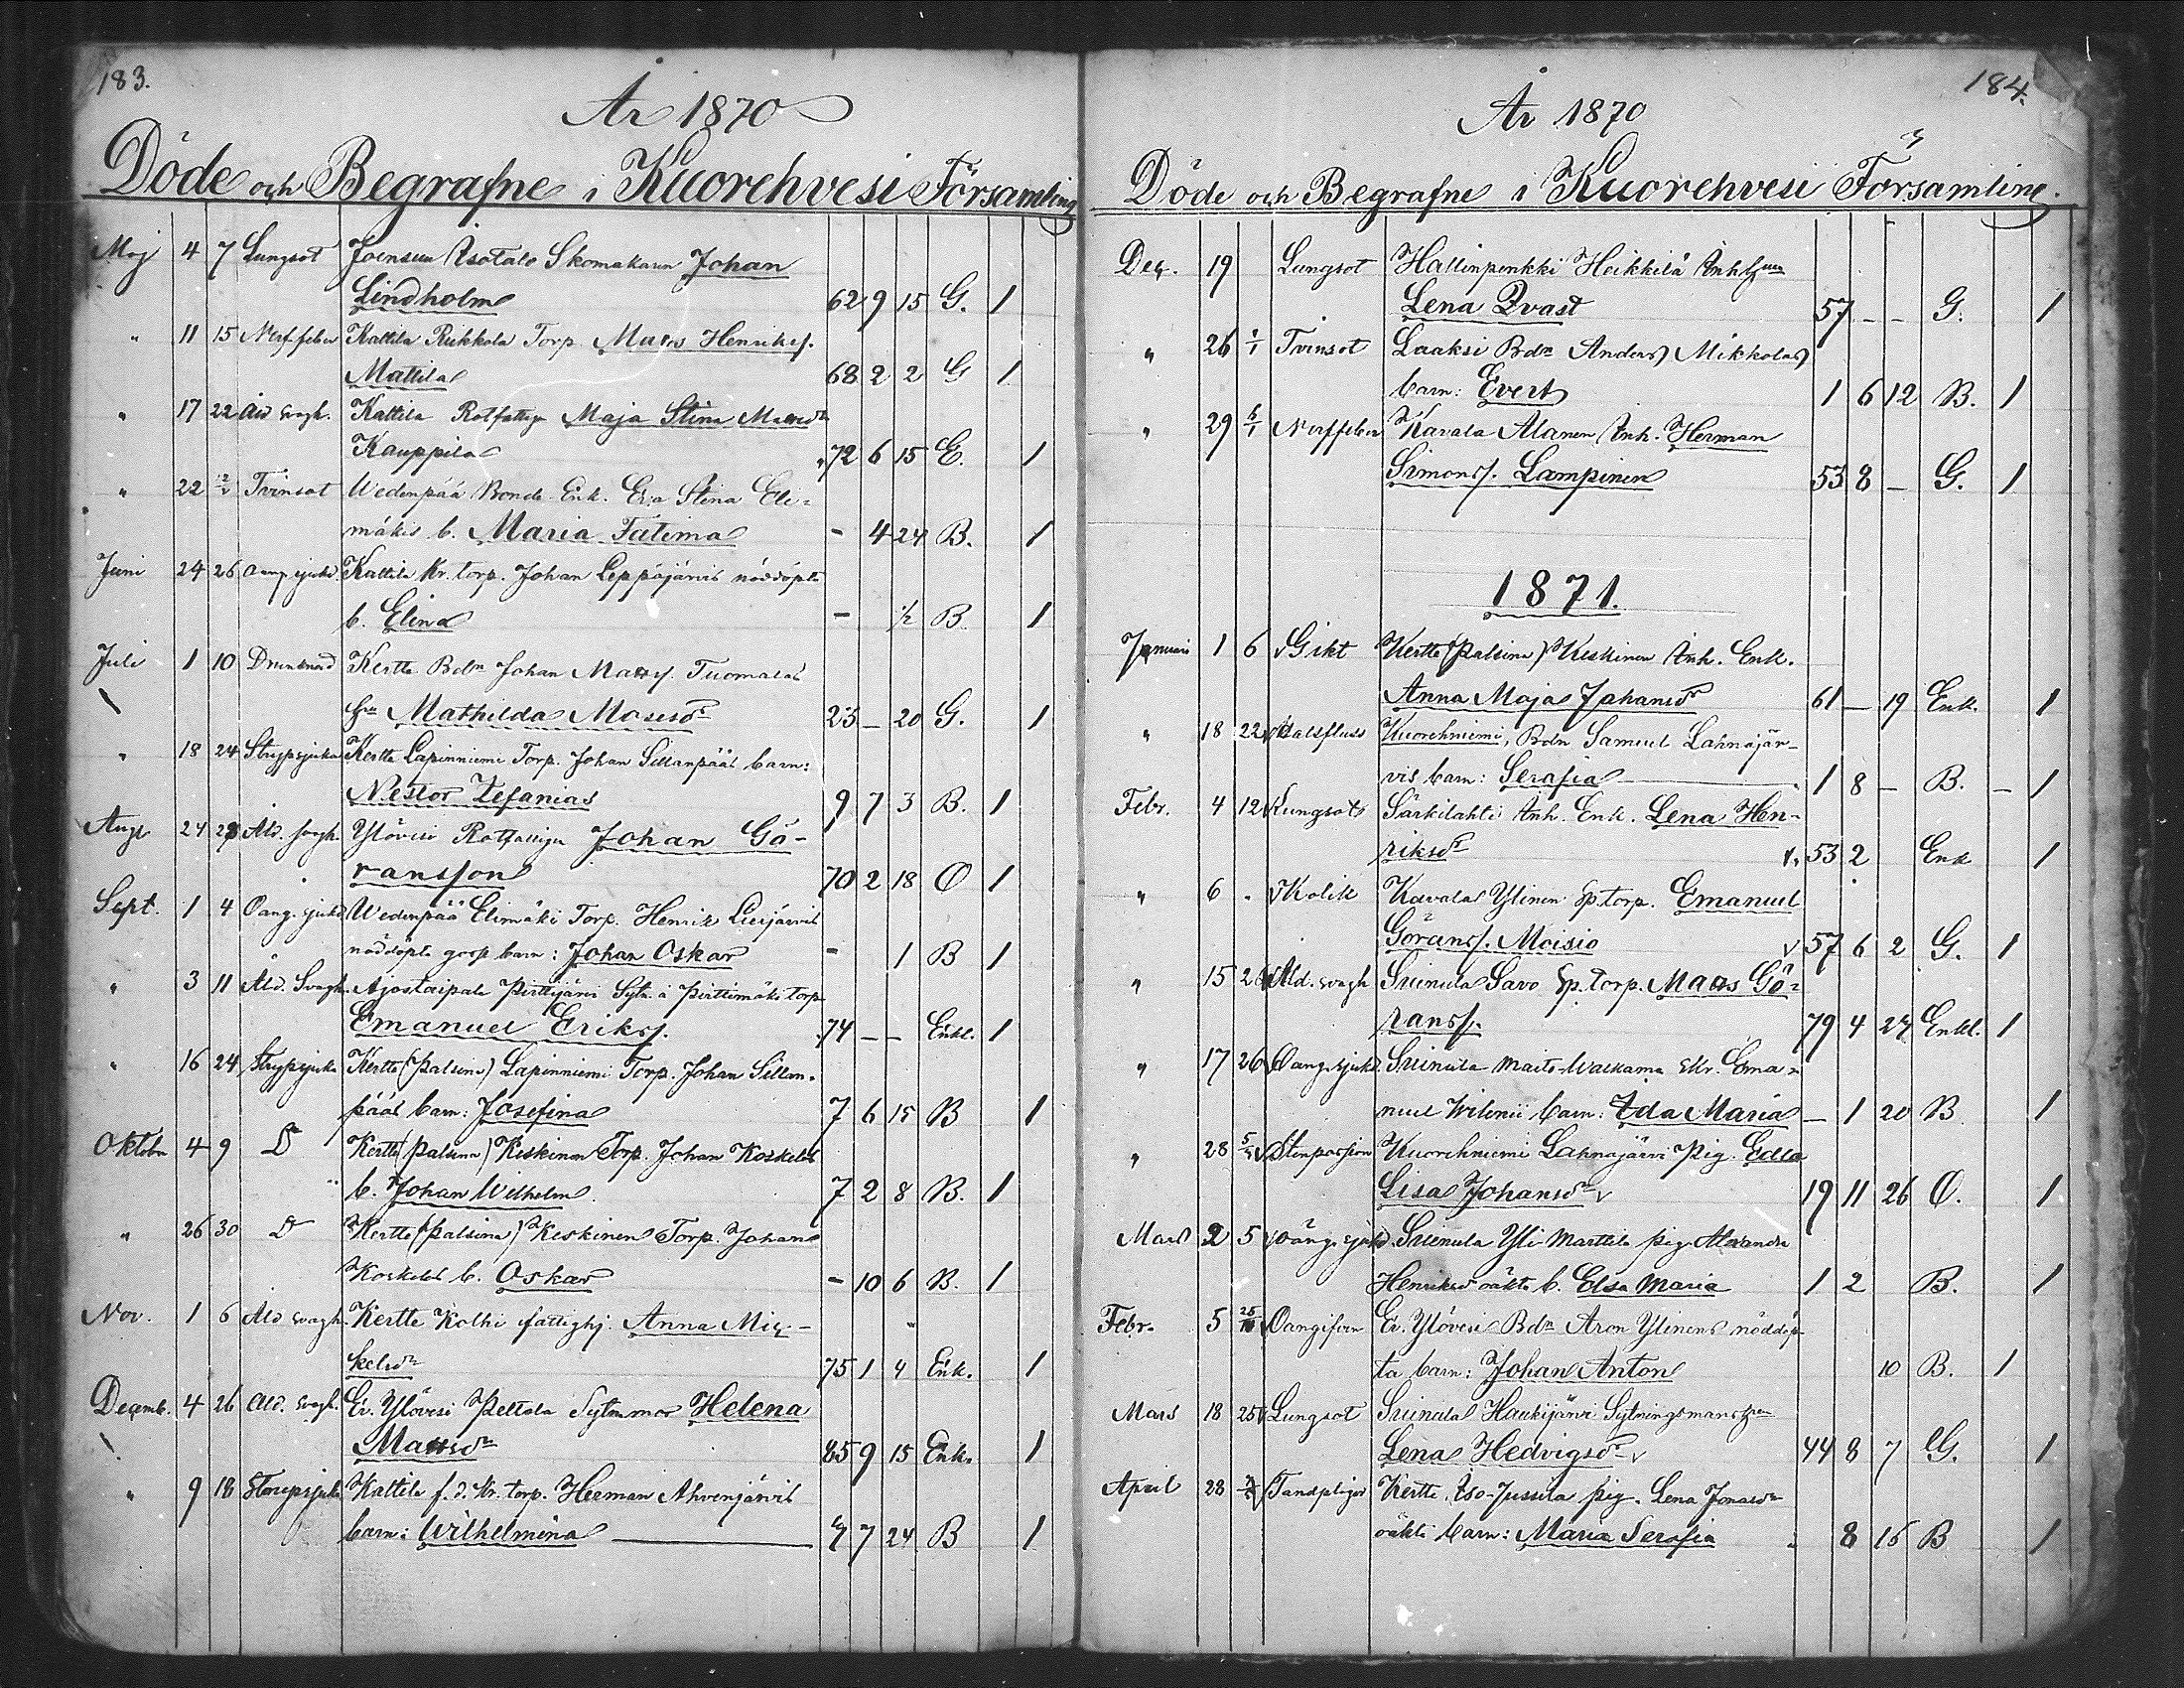 183.
År 1870
Döde och Begrafne i Kuorehvesi Församling
Maj 4 7 Lungsot Joensuu Isotalo Skomakaren Johan
Lindholm 62 9 15 G. 1
" 11 15 Nerffeber Kattila Rekkola Torp. Matts Henriksf.
Mattila 68 2 2 G 1
" 17 22 Åld svagh. Kattila Rotfattig Maja Stina Mattsdr
Kauppila 72 6 15 E. 1
" 22 Tvinsot Wedenpää Bonde Enk. Eva Stina Eli-
mäkis b. Maria Fatima - 4 24 B. 1
Juni 24 26 Oang. sjukd. Kattila Kr. torp. Johan Leppäjärvis nöddöpta
b. Elina - ½ B. 1
Juli 1 10 Drunknad Kertte Bdn Johan Mattsf. Tuomalas
Mathilda Mosesdr 25 - 20 G. 1
" 18 24 Strypsjuka Kertte Lapinniemi Torp. Johan Sillanpääs barn:
Nestor Zefanias 9 7 3 B. 1
Aug. 24 28 Åld. svagh. Ylövesi Rotfattige Johan Gö-
ransson 70 2 18 O 1
Sept. 1 4 Oang. sjukd Wedenpää Elimäki Torp. Henrik Liesjärvis
nöddöpta goss barn: Johan Oskar - 1 B 1
" 3 11 Åld. Svagh. Ajostaipale Pirttijärvi Sytn. å Pirttimäki torp
Emanuel Eriksf. 74 - - Enkl. 1
" 16 24 Strypsjuka Kertte (Palsina) Lapinniemi Torp. Johan Sillan-
pääs barn: Josefina 7 6 15 B 1
Oktobr 4 9 D Kertte (Palsina) Keskinen Torp. Johan Koskelas
b. Johan Wilhelm 7 2 8 B. 1
" 26 30 D Kertte (Palsina) Keskinen Torp. Johan
Koskelas b. Oskar - 10 6 B. 1
Nov. 1 6 Åld svagh. Kertte Kolhi fattighj. Anna Mic-
kelsdr 75 1 4 Enk. 1
Decemb. 4 26 Åld. svagh. Er. Ylövesi Peltola Sytnmor Helena
Mattsdr 85 9 15 Enk. 1
" 9 18 Strupsjuka Kattila f. d. Kr. torp. Herman Ahvenjärvis
barn: Wilhelmina 7 7 24 B 1
184.
År 1870
Döde och Begrafne i Kuorehvesi Församling.
Dec. 19 Lungsot Hallinpenkki Heikkilä Inh
Lena Qvast 57 - - G. 1
" 26 1/1 Tvinsot Laaksi Bdn Anders Mikkolas
barn: Evert 1 6 12 B. 1
" 29 6/1 Nerffeber Kavala Alanen Inh. Herman
Simonsf. Lampinen 53 8 - G. 1
1871.
Januari 1 6 Gikt Kertte (Palsina) Keskinen Inh. Enk.
Anna Maja Johansdr 61 - 19 Enk. 1
" 18 22 Halsfluss Kuorehniemi, Bdn Samuel Lahnajär-
vis barn: Serafia 1 8 - B. - 1
Febr. 4 12 Lungsots Särkilahti Inh. Enk. Lena Hen-
riksdr 53 2 Enk 1
" 6 " Kolik Kavala Ylinen Sp. torp. Emanuel
Göransf. Moisio 57 6 2 G. 1
" 15 26 Åld. svagh Suinula Savo Sp. torp. Matts Gö-
ransf. 79 4 27 Enkl. 1
" 17 26 Oang. sjukd. Suinula Maito-Waskama Skr. Ema-
nuel Wilenii barn: Ida Maria - 1 20 B 1
" 28 Kuorehniemi Lahnajärvi Pig. Edla
Lisa Johansdr 19 11 26 O. 1
Mars 2 5 oång. sjukd. Suinula Yli Marttila pig. Alexandra
Henriksdr oäkta b. Elsa Maria 1 2 B. 1
Febr. 5 Oangifven Er. Ylövesi Bdn Aron Ylinens nöddöp-
ta barn: Johan Anton 10 B. 1
Mars 18 25 Lungsot Suinula Haukijärvi Sytningsmans
Lena Hedvigsdr 44 8 7 G. 1
April 28 Tandplågor Kertte, Iso-Jussila pig. Lena Jonasdr
oäkta barn: Maria Serafia 8 16 B 1